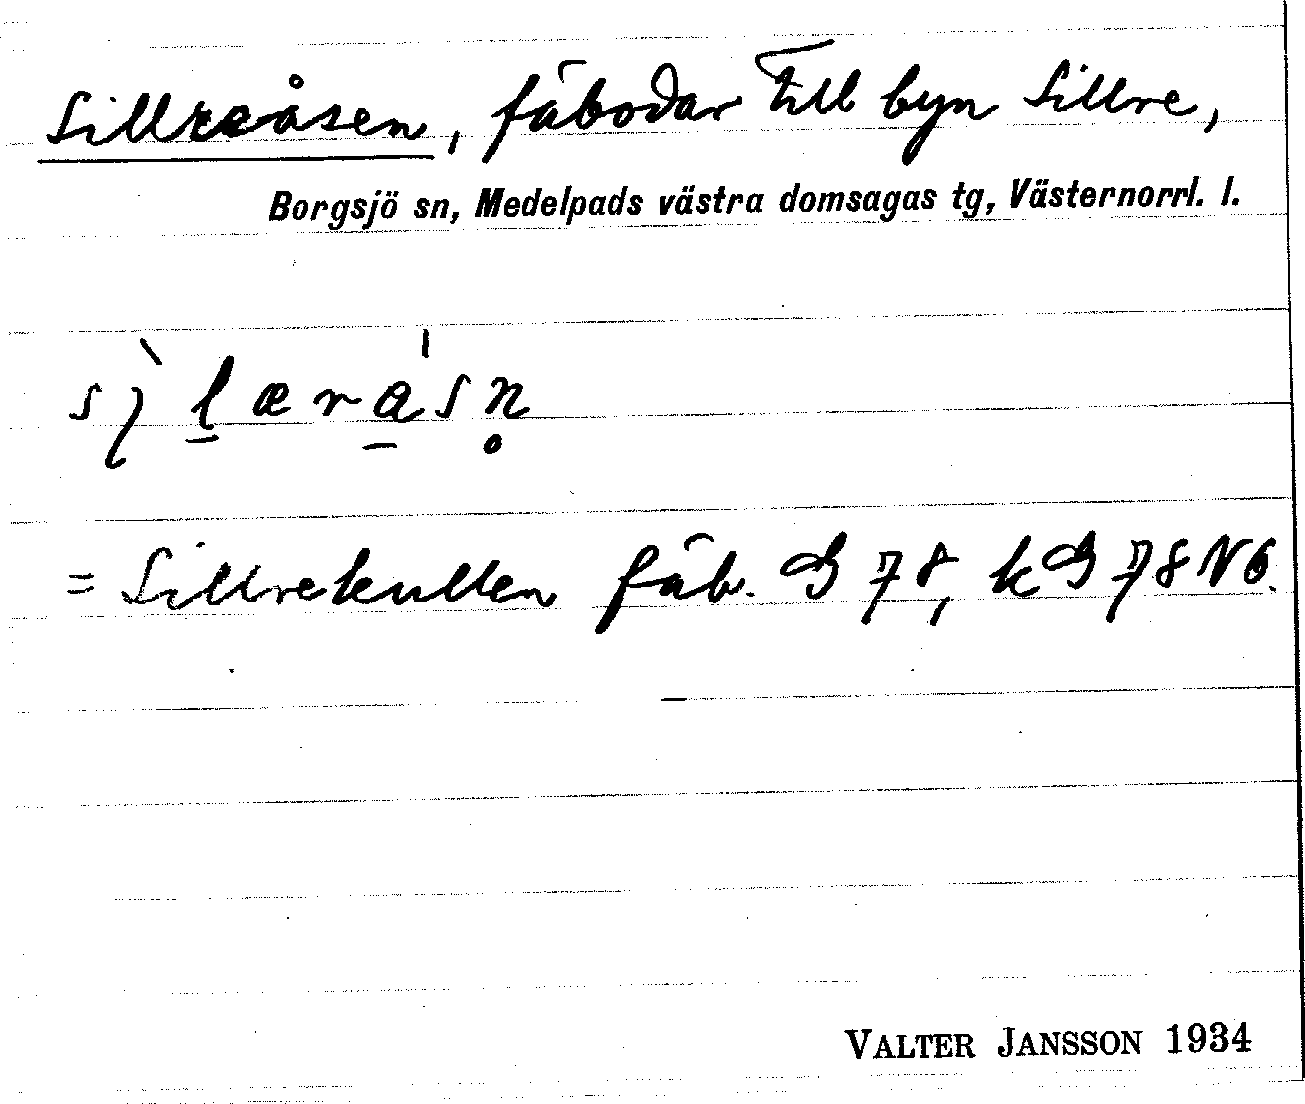 Sillreåsen, fäbodar till byn Sillre,
Borgsjö sn, Medelpads västra domsagas tg, Västernorrl. l.
= Sillrekullen fäb. G 78, k G 78 NÖ.
VALTER JANSSON 1934